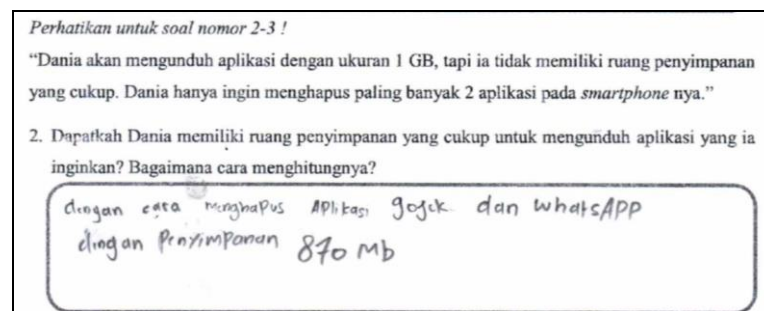 Perhatikan untuk soal nomor 2-3 !
“Dania akan mengunduh aplikasi dengan ukuran 1 GB, tapi ia tidak memiliki ruang penyimpanan
yang cukup. Dania hanya ingin menghapus paling banyak 2 aplikasi pada smartphone nya.”
2. Dapatkah Dania memiliki ruang penyimpanan yang cukup untuk mengunduh aplikasi yang ia
inginkan? Bagaimana cara menghitungnya?
dengan cara menghapus Aplikasi gojek dan whatsAPP
dingan Penyimpanan 870 Mb